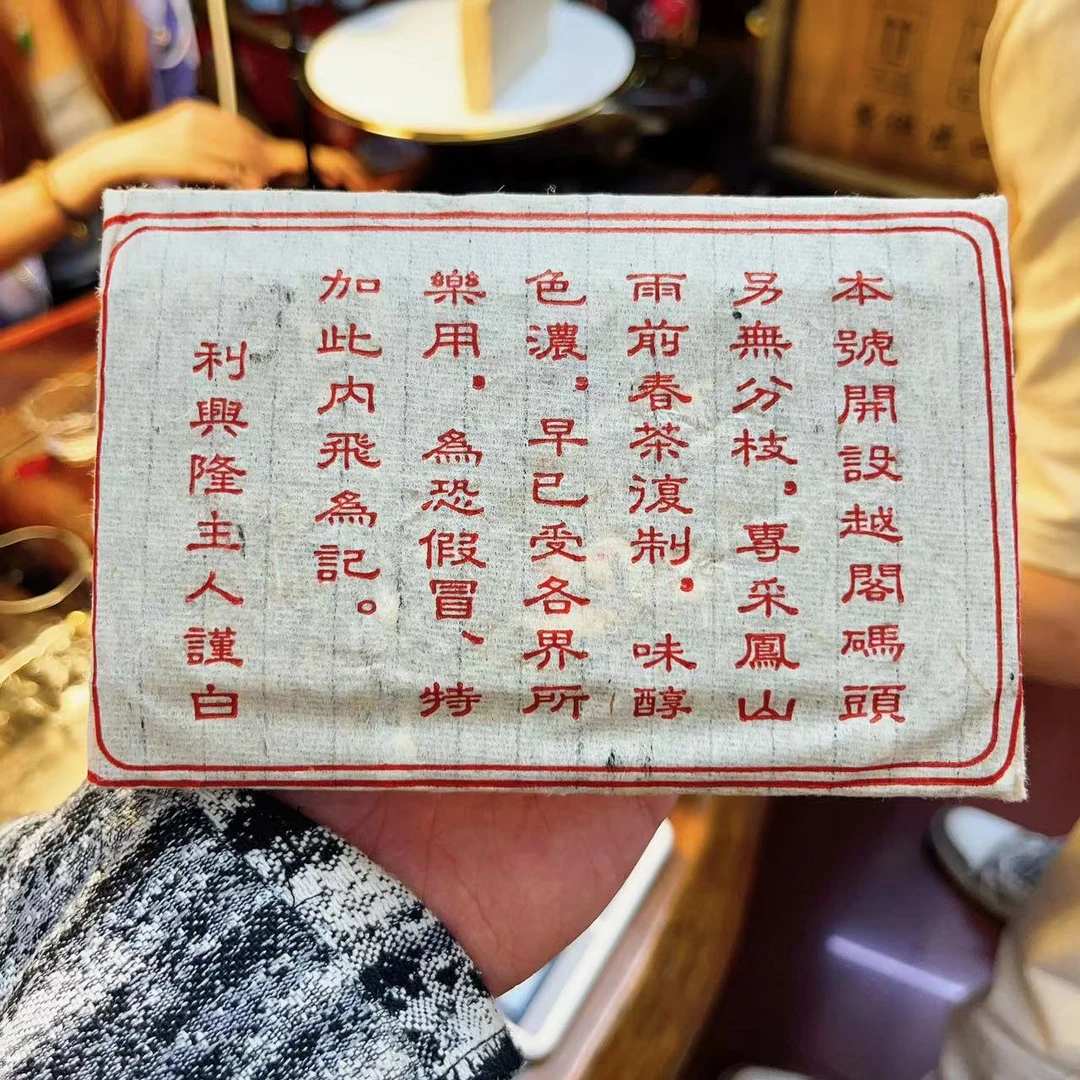 本號開設越閣碼頭
另無分枝，專采鳳山
雨前春茶復制。味醇
色濃。早已受各界所
樂用。為恐假冒、特
加此内飛為記。
利興隆主人謹白